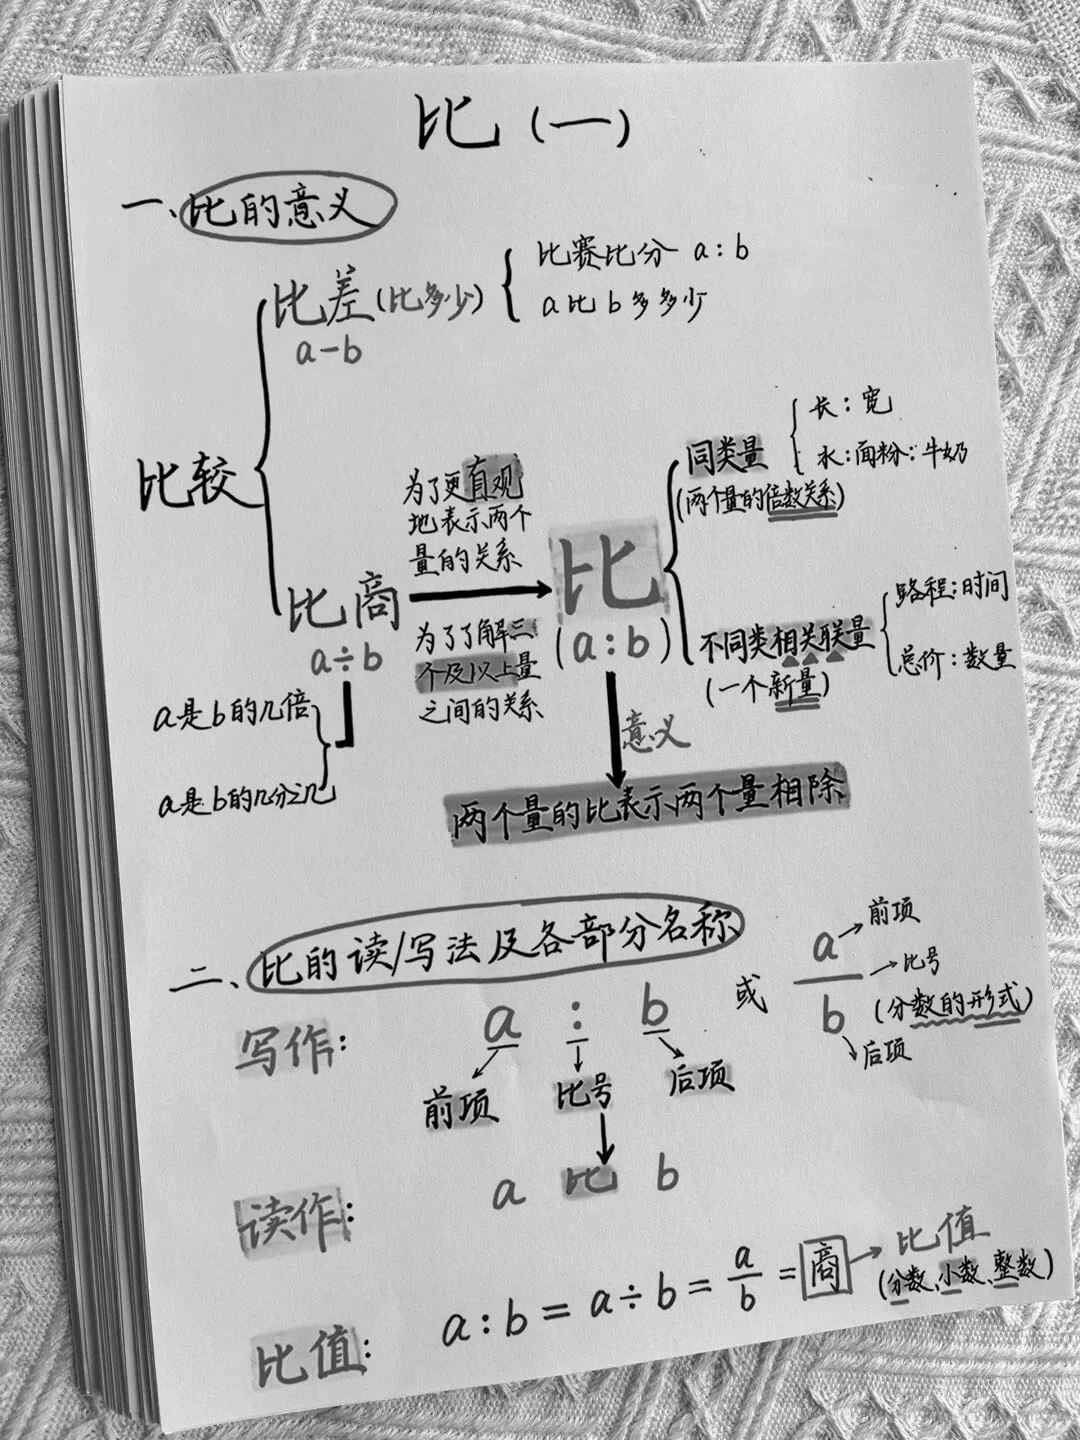 比(一)
一、比的意义
比较
比差(比多少)
a-b
比赛比分 a:b
a比b多多少
比商
a÷b
a是b的几倍
a是b的几分之几
为了更直观
地表示两个
量的关系
为了了解三
个及以上量
之间的关系
比
(a:b)
同类量
(两个量的倍数关系)
长:宽
水:面粉:牛奶
不同类相关联量
(一个新量)
路程:时间
总价:数量
意义
两个量的比表示两个量相除
二、比的读/写法及各部分名称
写作: a : b 或 a/b
前项 比号 后项
前项
比号
(分数的形式)
后项
读作: a 比 b
比值: a:b=a÷b=a/b=商→比值
(分数、小数、整数)